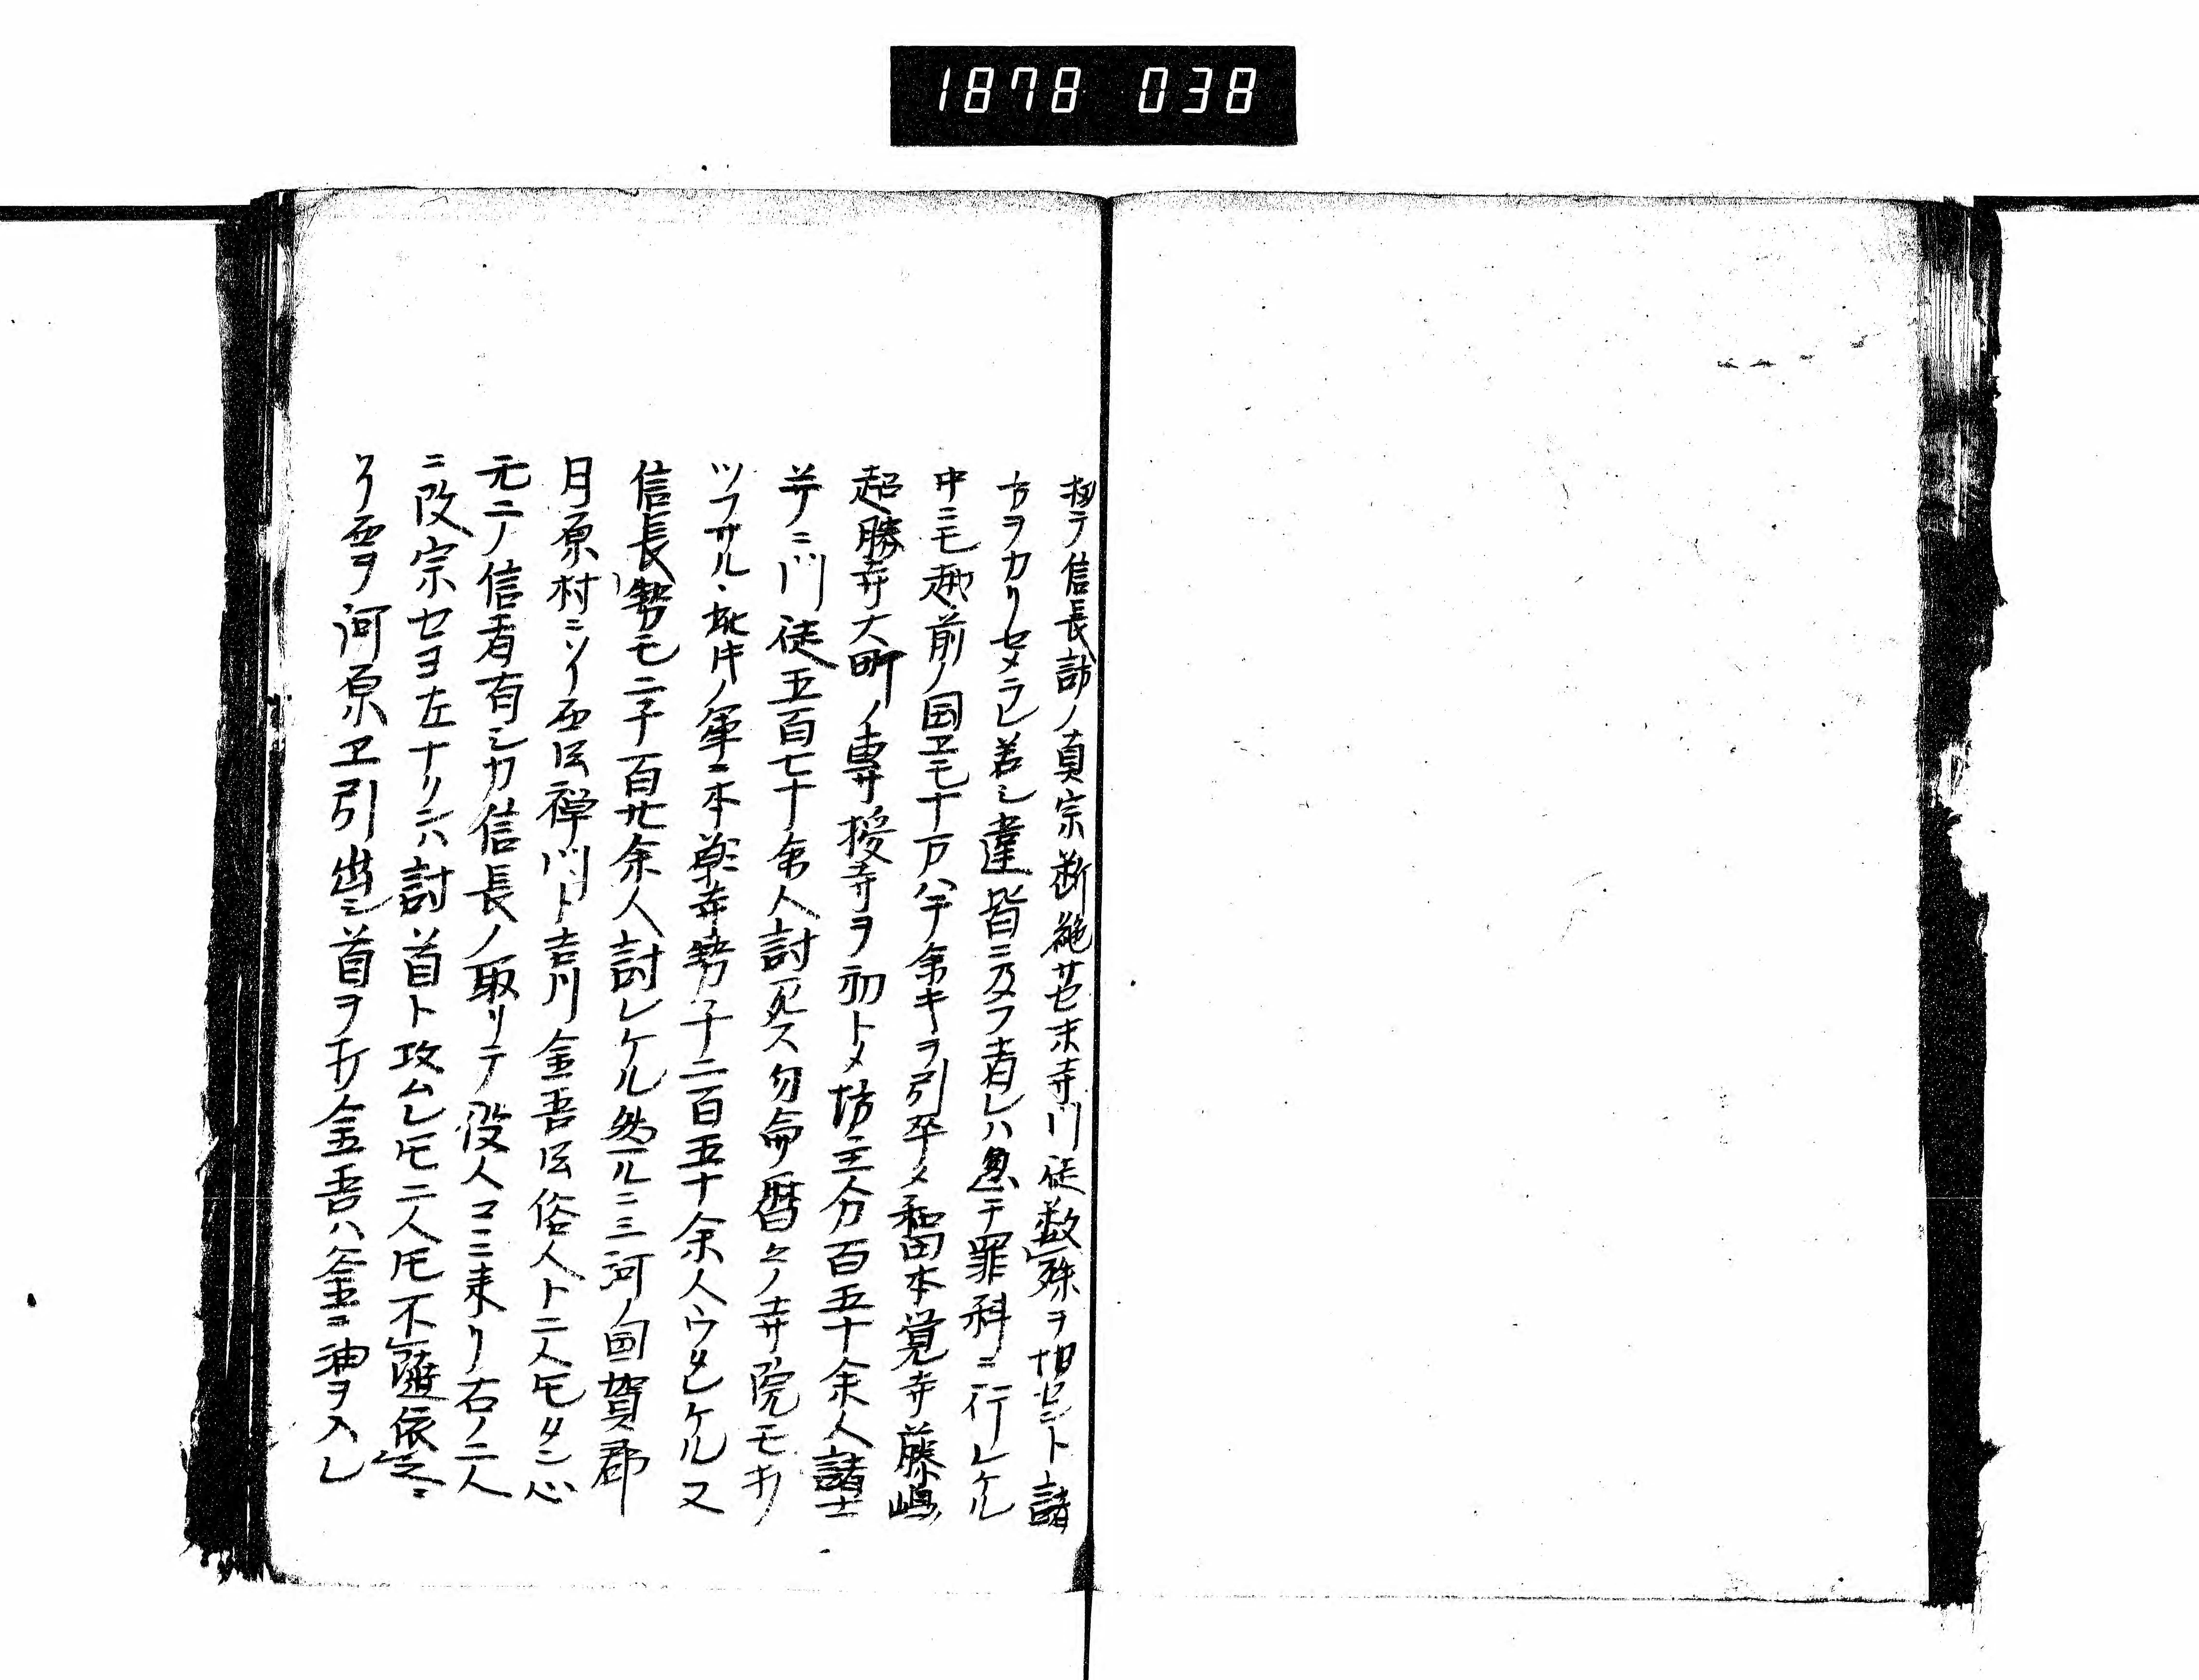 1878 038
扨テ信長諸ノ真宗断絶サセ末寺門徒数殊ヲ相セント諸
方ヲカリセメラレ若シ違背ニ及フ者レハ急キ罪科ニ行レケル
中ニモ越前ノ国ヱモ十万八千余キヲ引卒メ和田本覚寺藤嶋
超勝寺大町ノ専授寺ヲ初トメ坊主分百五十余人諸士
并ニ門徒五百七十余人討死ス勿侖暦々ノ寺院モキ
ツフサル此年ノ軍ニ本願寺勢千二百五十余人ウタレケル又
信長勢モ二千百廿余人討レケル然ルニ三河ノ国賀郡
月原村ニソイ西云禅門ト吉川金吾云俗人ト二人モタニ心
元ニノ信者有シカ信長ノ取リテ役人コニ来リ右ノ二人
ニ改宗セヨ左ナリニハ討首ト攻ムレ共二人共不随依之ニ
ソイ西ヲ河原ヱ引出シ首ヲ打金吾ハ釜ニ油ヲ入レ